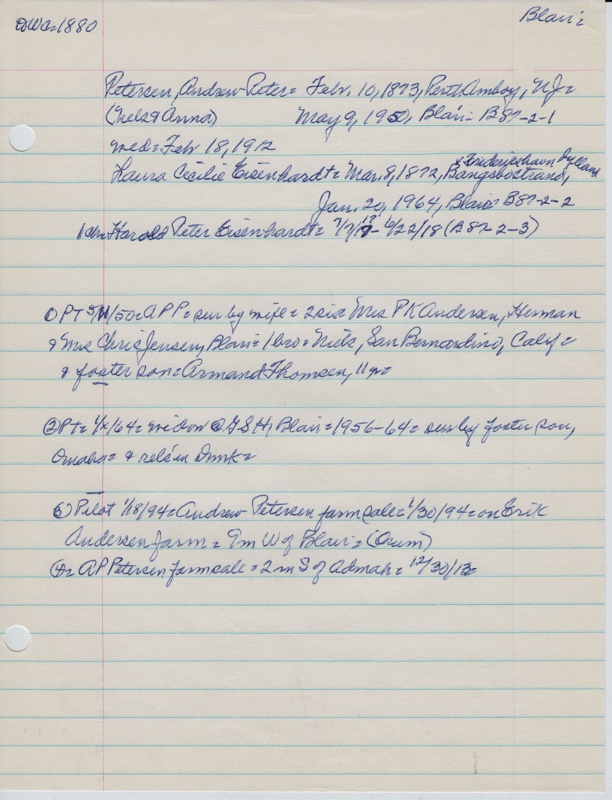 DWC=1880
Blair:
Petersen, Andrew Peter= Febr. 10, 1873, Perth Amboy, NJ=
(Nels & Anna) May 9, 1950, Blair= B87-2-1
med= Feb 18, 1912
Frederickshavn Jylland
Laura Cecilie Eisenhardt= Mar. 8, 1872, Bangsbostrand,
Jan. 20, 1964, Blair= B87-2-2
1 ch= Harold Peter Eisenhardt= 7/7/17- 6/22/18 (B87-2-3)
① PT 5/11/50= APP= sur by wife= 2 sis Mrs PK Andersen, Herman
& Mrs Chris Jensen, Blair= 1 bro= Niels, San Bernardino, Calif=
& foster son= Armand Thomsen,
② PT= 64= widow @ GSH, Blair= 1956-64= sur by foster son,
Omaha= & rels in Dmk=
③ Pilot 1/18/94= Andrew Petersen farm sale= 1/30/94= on Erik
Andersen farm= 9m W of Blair= (Orum)
④= AP Petersen farm sale= 2 m S of Admah= 12/30/13=